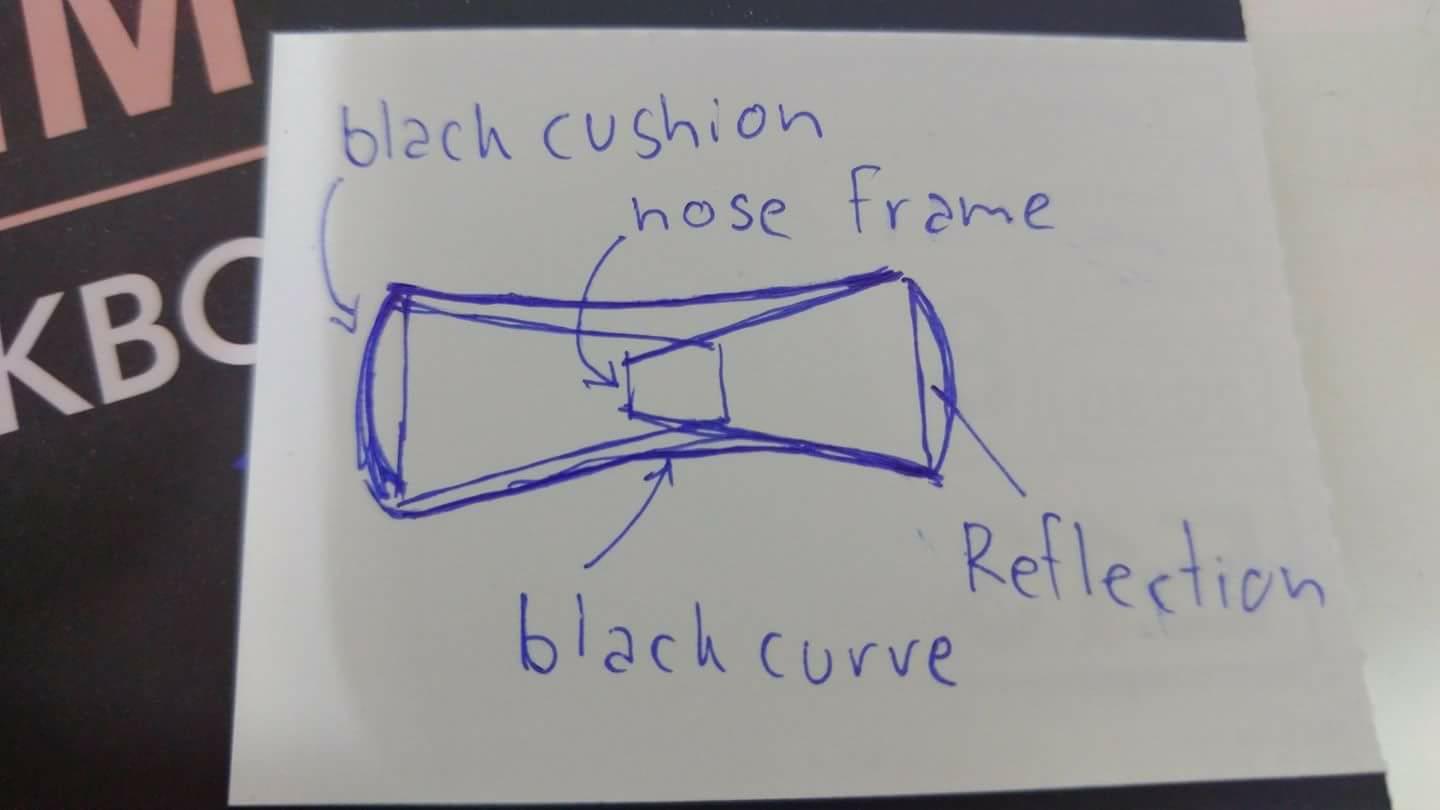 M
KBO
black cushion
nose frame
Reflection
black curve